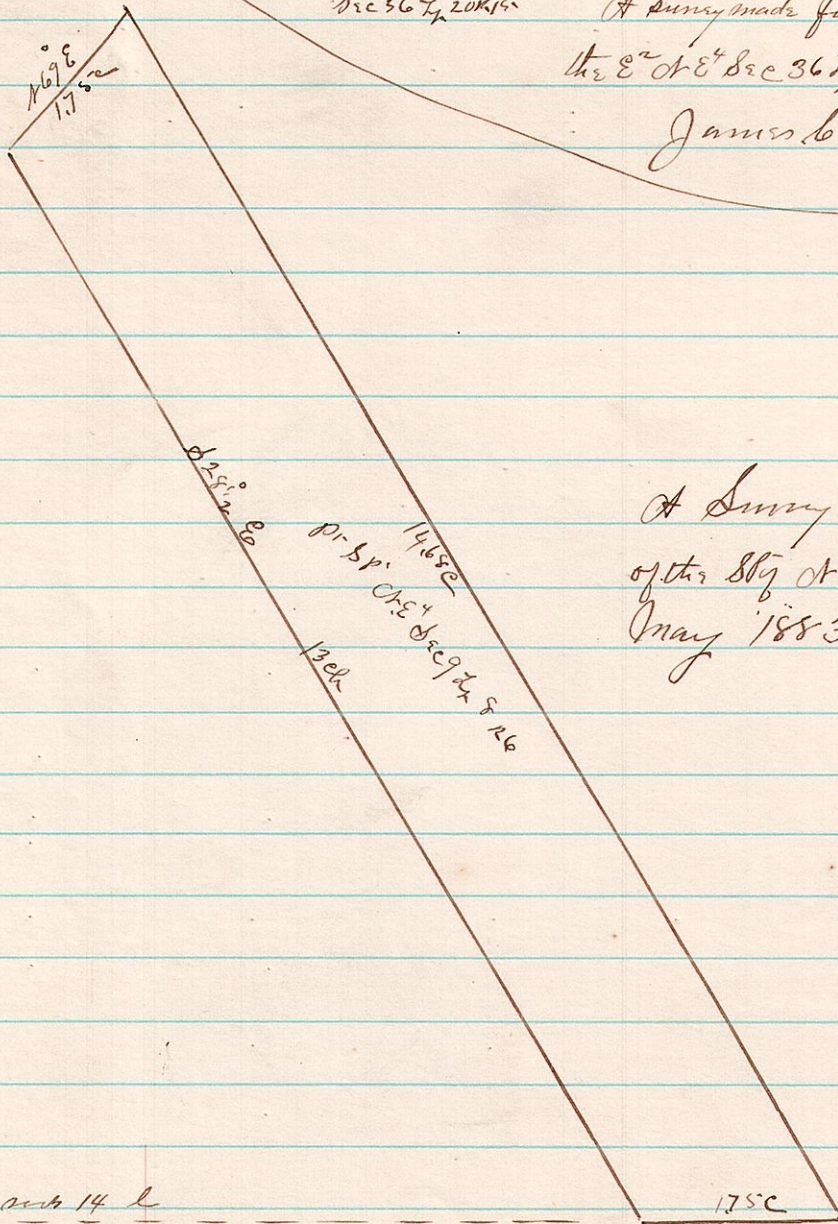 Sec 36 Tp 20 R 15
A survey made for
the E² N E⁴ Sec 36
James C
N 69° E
1.75 c
S 28°½ E
14.68 C
Pr. Sp. N.E⁴ Sec 9 Tp 8 R 6
13 ch
A Survey
of the
May 1883
14 l
1.75 C